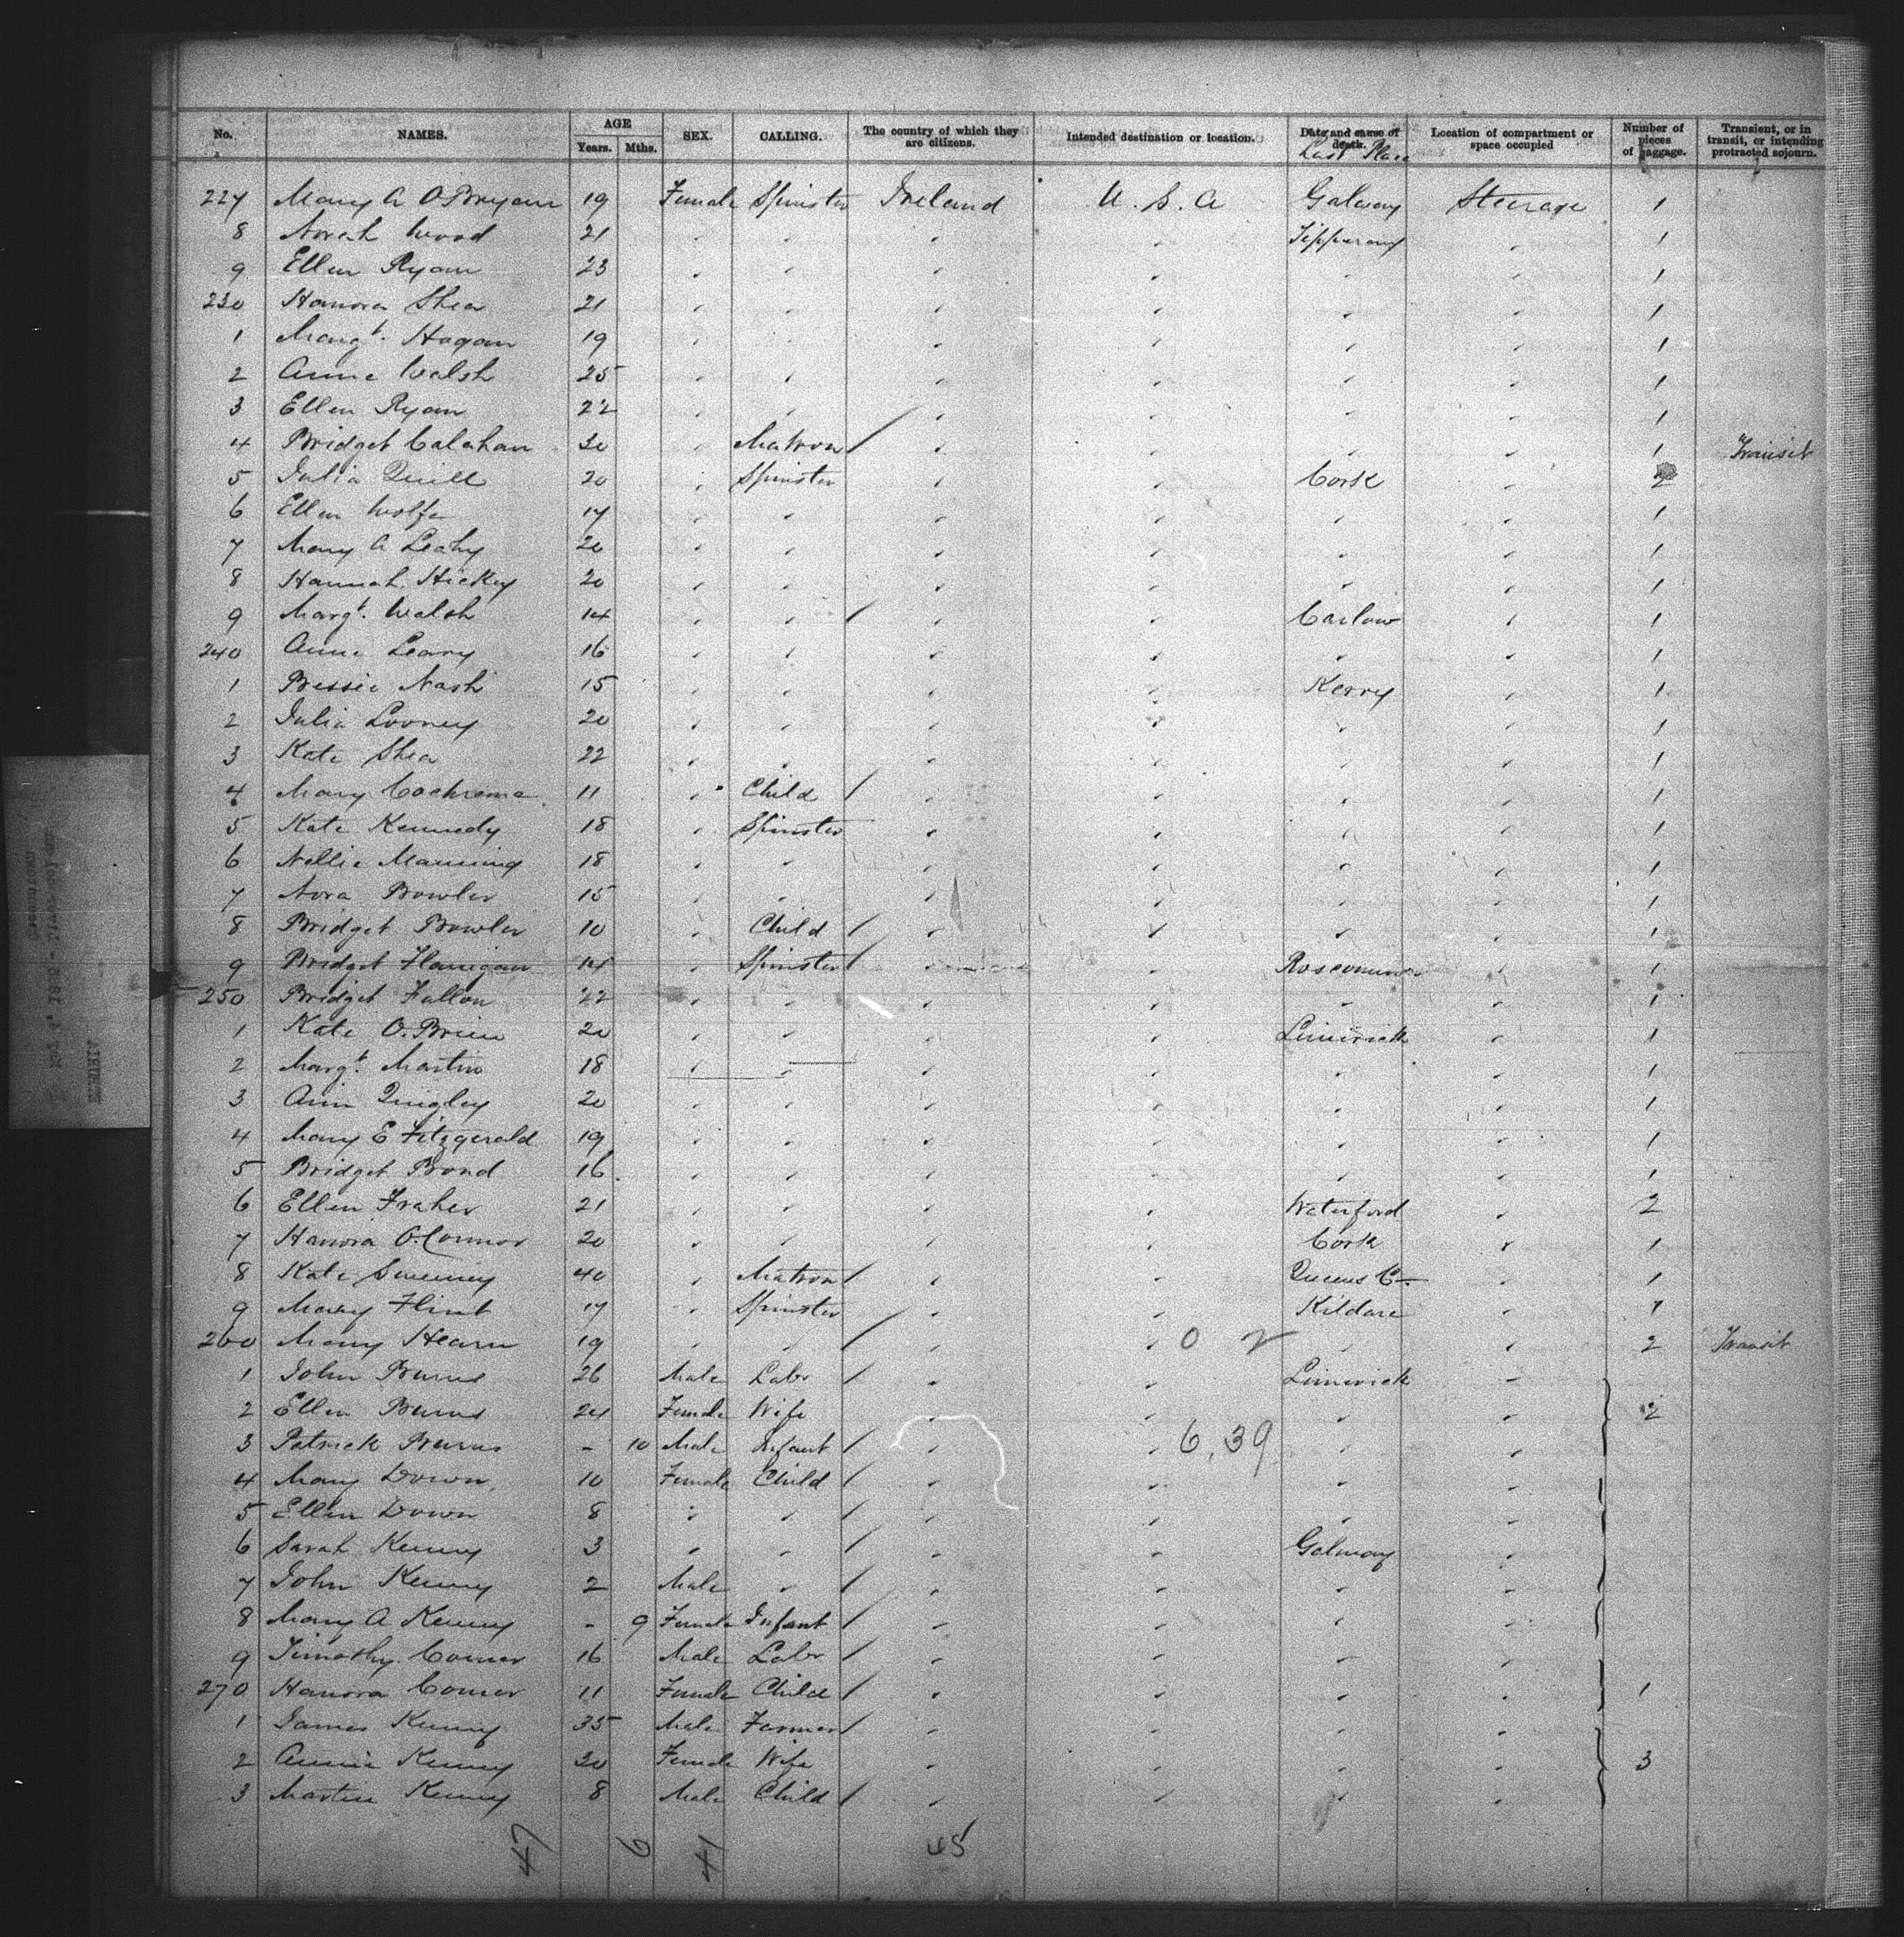 No. NAMES. AGE Years. Mths. SEX. CALLING. The country of which they are citizens. Intended destination or location. Date and cause of death. Last Place Location of compartment or space occupied Number of pieces of baggage. Transient, or in transit, or intending protracted sojourn.
227 Mary A O'Bryan 19 Female Spinster Ireland U.S.A Galway Steerage 1
8 Norah Wood 21 Tipperary 1
9 Ellen Ryan 23 1
230 Hanora Shea 21 1
1 Margt. Hogan 19 1
2 Anne Walsh 25 1
3 Ellen Ryan 22 1
4 Bridget Calahan 30 Matron 1 Transit
5 Julia Quill 20 Spinster Cork 2
6 Ellen Wolfe 17 1
7 Mary A Leahy 20 1
8 Hannah Hickey 20 1
9 Margt. Walsh 14 Carlow 1
240 Anne Leary 16 1
1 Bessie Nash 15 Kerry 1
2 Julia Looney 20 1
3 Kate Shea 22 1
4 Mary Cochrane 11 Child 1
5 Kate Kennedy 18 Spinster 1
6 Nellie Manning 18 1
7 Nora Bowler 15 1
8 Bridget Bowler 10 Child 1
9 Bridget Flanigan 14 Spinster Roscommon 1
250 Bridget Fallon 22 1
1 Kate O.Brien 20 Limerick 1
2 Margt. Martin 18 1
3 Ann Quigley 20 1
4 Mary E Fitzgerald 19 1
5 Bridget Bond 16 1
6 Ellen Fraher 21 Waterford 2
7 Hanora O.Connor 20 Cork 1
8 Kate Sweeney 40 Matron Queens Co 1
9 Mary Flint 17 Spinster Kildare 1
260 Mary Hearn 19 0 2 2 Transit
1 John Burns 26 Male Labr Limerick
2 Ellen Burns 24 Female Wife 2
3 Patrick Burns - 10 Male Infant 6,39
4 Mary Down 10 Female Child
5 Ellen Down 8
6 Sarah Kenny 3 Galway
7 John Kenny 2 Male
8 Mary A Kenny - 9 Female Infant
9 Timothy Comer 16 Male Labr
270 Hanora Comer 11 Female Child 1
1 James Kenny 35 Male Farmer
2 Annie Kenny 30 Female Wife 3
3 Martin Kenny 8 Male Child
47 6 41 45